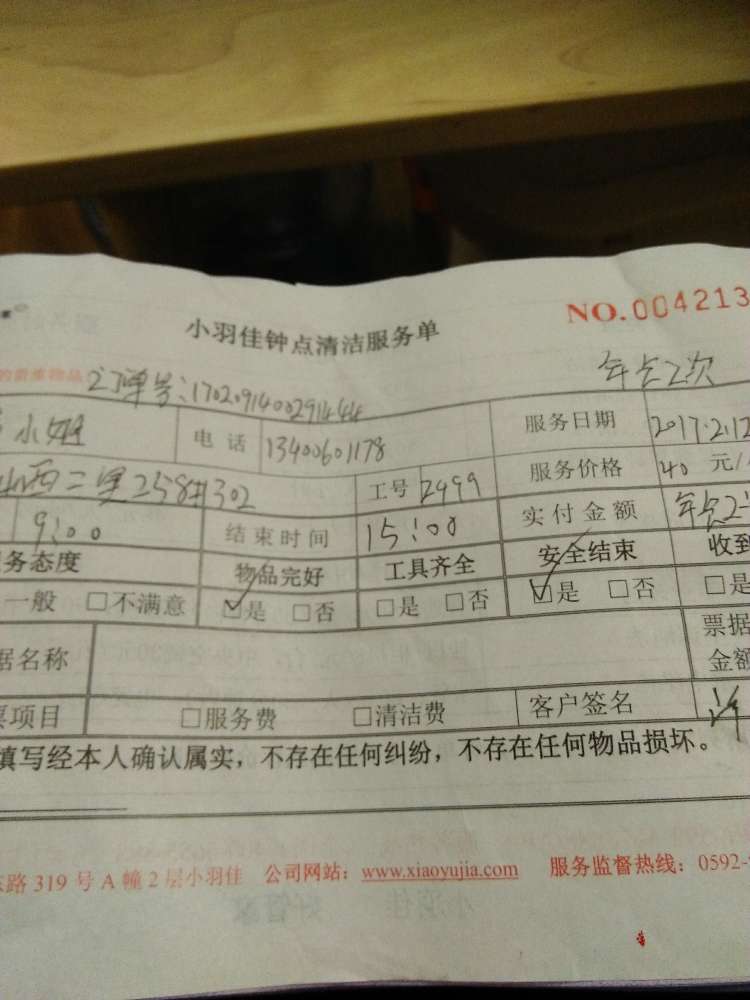 小羽佳钟点清洁服务单 NO.004213
的贵重物品 订单号:1702091400291444 年卡2次
小姐 电话 13400601178 服务日期 2017.2.12
西二里258#302 工号 2499 服务价格 40 元/
9:00 结束时间 15:00 实付金额 年卡2
务态度 物品完好 工具齐全 安全结束 收到
一般 □不满意 ☑是 □否 □是 □否 ☑是 □否 □是
据名称 票据
金额
票项目 □服务费 □清洁费 客户签名 许
填写经本人确认属实，不存在任何纠纷，不存在任何物品损坏。
东路 319 号 A 幢 2 层小羽佳 公司网站：www.xiaoyujia.com 服务监督热线：0592-